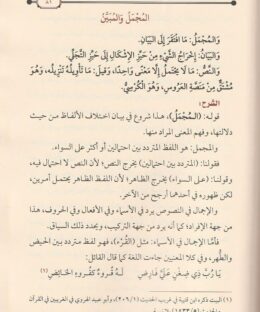 ٨٦
المُجْمَلُ وَالمُبَيَّنُ
وَالمُجْمَلُ: مَا افْتَقَرَ إِلَى البَيَانِ.
وَالبَيَانُ: إِخْرَاجُ الشَّيْءِ مِنْ حَيِّزِ الإِشْكَالِ إِلَى حَيِّزِ التَّجَلِّي.
وَالنَّصُّ: مَا لَا يَحْتَمِلُ إِلَّا مَعْنًى وَاحِدًا، وَقِيلَ: مَا تَأْوِيلُهُ تَنْزِيلُهُ، وَهُوَ
مُشْتَقٌّ مِنْ مَنَصَّةِ العَرُوسِ، وَهُوَ الْكُرْسِيُّ.
الشرح:
قوله: (المُجْمَلُ)، هذا شروع في بيان اختلاف الألفاظ من حيث
دلالتها، وفهم المعنى المراد منها.
والمجمل: هو اللفظ المتردد بين احتمالين أو أكثر على السواء.
فقولنا: (المتردد بين احتمالين) يخرج النص؛ لأن النص لا احتمال فيه،
وقولنا: (على السواء) يخرج الظاهر؛ لأن اللفظ الظاهر يحتمل أمرين،
لكن ظهوره في أحدهما أرجح من الآخر.
والإجمال في النصوص يرد في الأسماء وفي الأفعال وفي الحروف، هذا
من جهة الإفراد؛ كما أنه يرد من جهة التركيب، ويحدد ذلك السياق.
فأمَّا الإجمال في الأسماء: مثل (القُرْء)، فهو لفظ متردد بين الحيض
والطُّهر، وفي كلا المعنيين جاءت اللغة كما قال القائل:
يَا رُبَّ ذِي ضِغْنٍ عَلَيَّ فَارِضِ لَهُ قُرُوءٌ كَقُرُوءِ الحَائِضِ (١)
(١) البيت ذكره ابن قتيبة في غريب الحديث (٢٠٩/١)، وأبو عبيد الهروي في الغريبين في القرآن